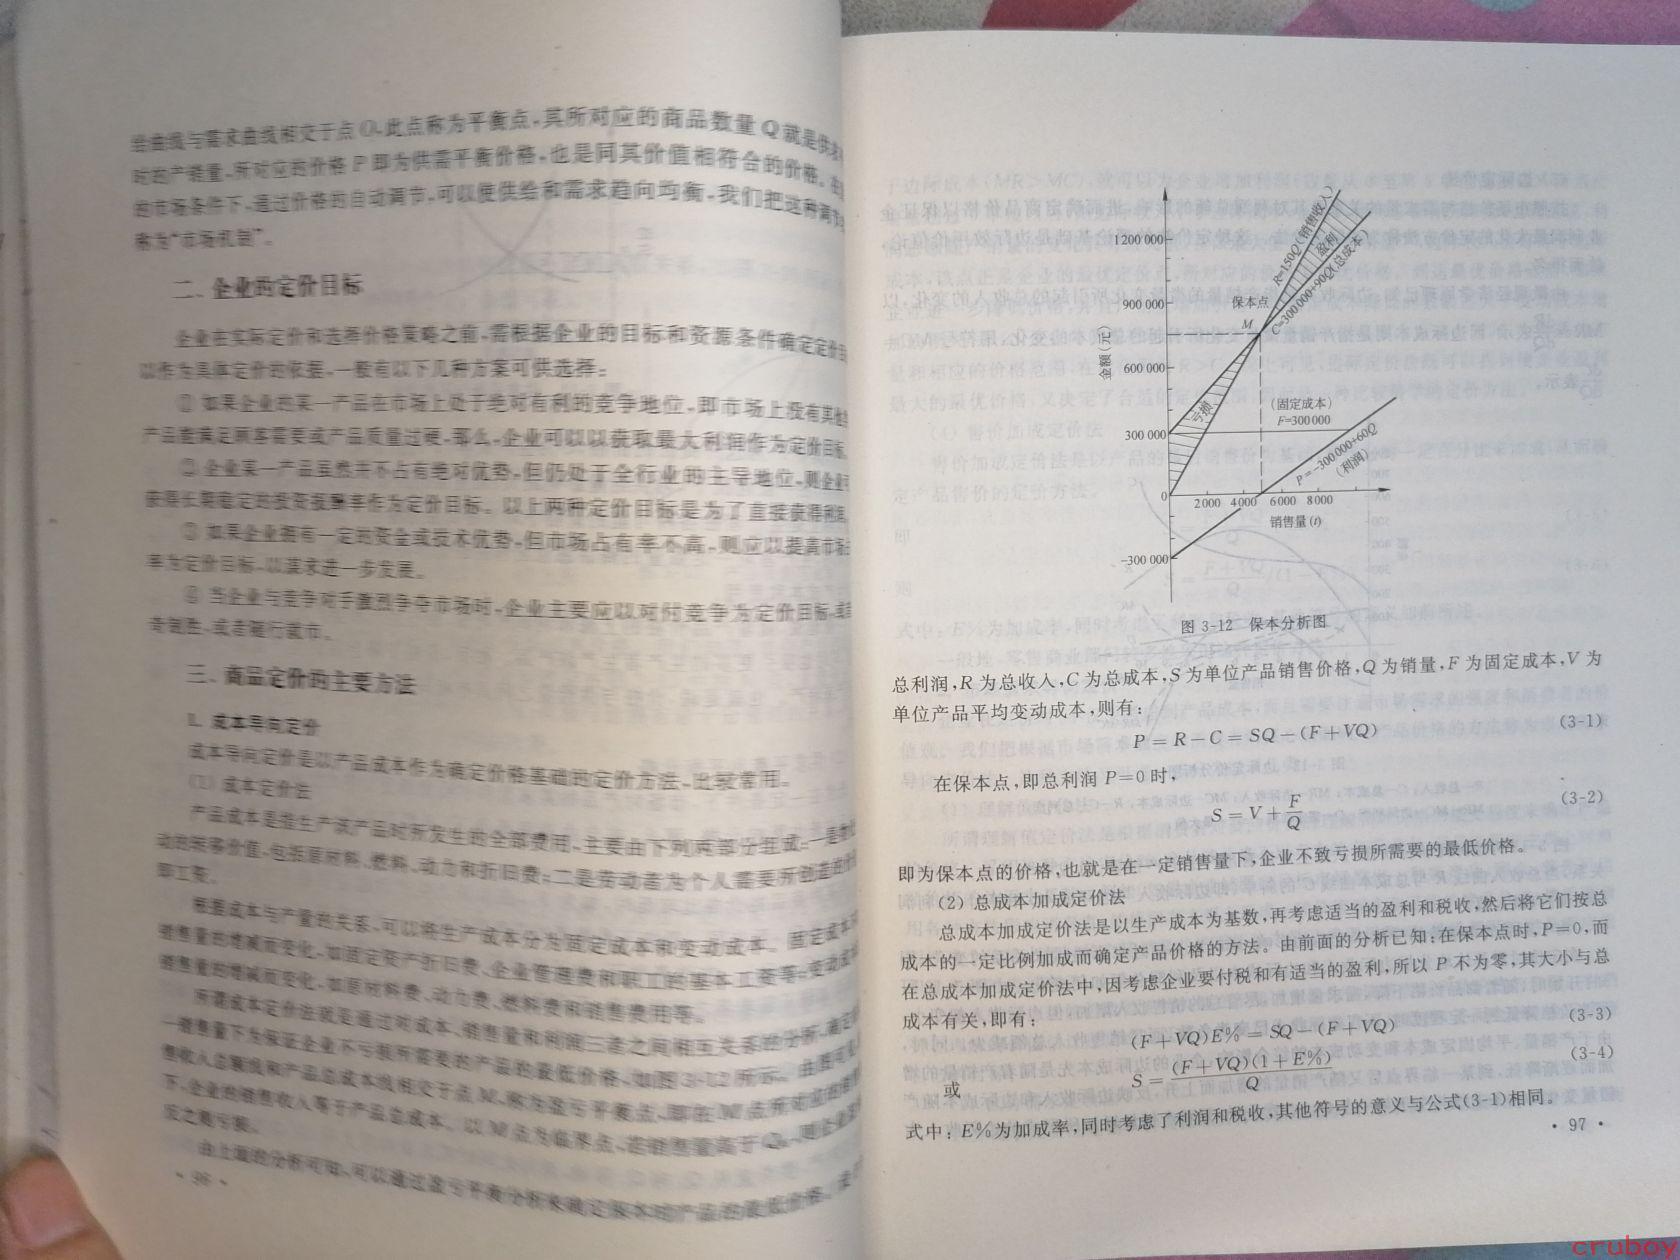 给曲线与需求曲线相交于点O,此点称为平衡点,其所对应的商品数量Q就是供求
时的产销量,所对应的价格P即为供需平衡价格,也是同其价值相符合的价格。在
的市场条件下,通过价格的自动调节,可以使供给和需求趋向均衡,我们把这种调节
称为“市场机制”。
二、企业的定价目标
企业在实际定价和选择价格策略之前,需根据企业的目标和资源条件确定定价目
以作为具体定价的依据,一般有以下几种方案可供选择:
① 如果企业的某一产品在市场上处于绝对有利的竞争地位,即市场上没有其他
产品能满足顾客需要或产品质量过硬,那么,企业可以以获取最大利润作为定价目标。
② 企业某一产品虽然并不占有绝对优势,但仍处于全行业的主导地位,则企业可
获得长期稳定的投资报酬率作为定价目标。以上两种定价目标是为了直接获得利润。
③ 如果企业拥有一定的资金或技术优势,但市场占有率不高,则应以提高市场占
率为定价目标,以谋求进一步发展。
④ 当企业与竞争对手激烈争夺市场时,企业主要应以对付竞争为定价目标,或
奇制胜,或者随行就市。
三、商品定价的主要方法
1. 成本导向定价
成本导向定价是以产品成本作为确定价格基础的定价方法,比较常用。
(1) 成本定价法
产品成本是指生产该产品时所发生的全部费用,主要由下列两部分组成:一是物化
动的转移价值,包括原材料、燃料、动力和折旧费;二是劳动者为个人需要所创造的价
即工资。
根据成本与产量的关系,可以将生产成本分为固定成本和变动成本。固定成本不
销售量的增减而变化,如固定资产折旧费、企业管理费和职工的基本工资等;变动成本
销售量的增减而变化,如原材料费、动力费、燃料费和销售费用等。
所谓成本定价法就是通过对成本、销售量和利润三者之间相互关系的分析,确定
一销售量下为保证企业不亏损所需要的产品的最低价格,如图3-12所示。由图可见
售收入总额线和产品总成本线相交于点M,称为盈亏平衡点,即在M点所对应的销售
下,企业的销售收入等于产品总成本。以M点为临界点,若销售量高于Q₀,则企业盈
反之则亏损。
由上面的分析可知,可以通过盈亏平衡分析来确定保本时产品的最低价格。设
· 96 ·
1200 000
900 000
600 000
300 000
0
-300 000
金额(元)
R=150Q(销售收入)
盈利
C=300000+90Q(总成本)
保本点
M
亏损
(固定成本)
F=300000
P=-300000+60Q
(利润)
2000 4000 6000 8000
销售量(t)
图 3-12 保本分析图
总利润,R为总收入,C为总成本,S为单位产品销售价格,Q为销量,F为固定成本,V为
单位产品平均变动成本,则有:
P = R - C = SQ - (F + VQ) (3-1)
在保本点,即总利润 P=0 时,
S = V + F/Q (3-2)
即为保本点的价格,也就是在一定销售量下,企业不致亏损所需要的最低价格。
(2) 总成本加成定价法
总成本加成定价法是以生产成本为基数,再考虑适当的盈利和税收,然后将它们按总
成本的一定比例加成而确定产品价格的方法。由前面的分析已知:在保本点时,P=0,而
在总成本加成定价法中,因考虑企业要付税和有适当的盈利,所以 P 不为零,其大小与总
成本有关,即有:
(F + VQ)E% = SQ - (F + VQ) (3-3)
或 S = (F + VQ)(1 + E%)/Q (3-4)
式中:E%为加成率,同时考虑了利润和税收,其他符号的意义与公式(3-1)相同。
· 97 ·
cruboy